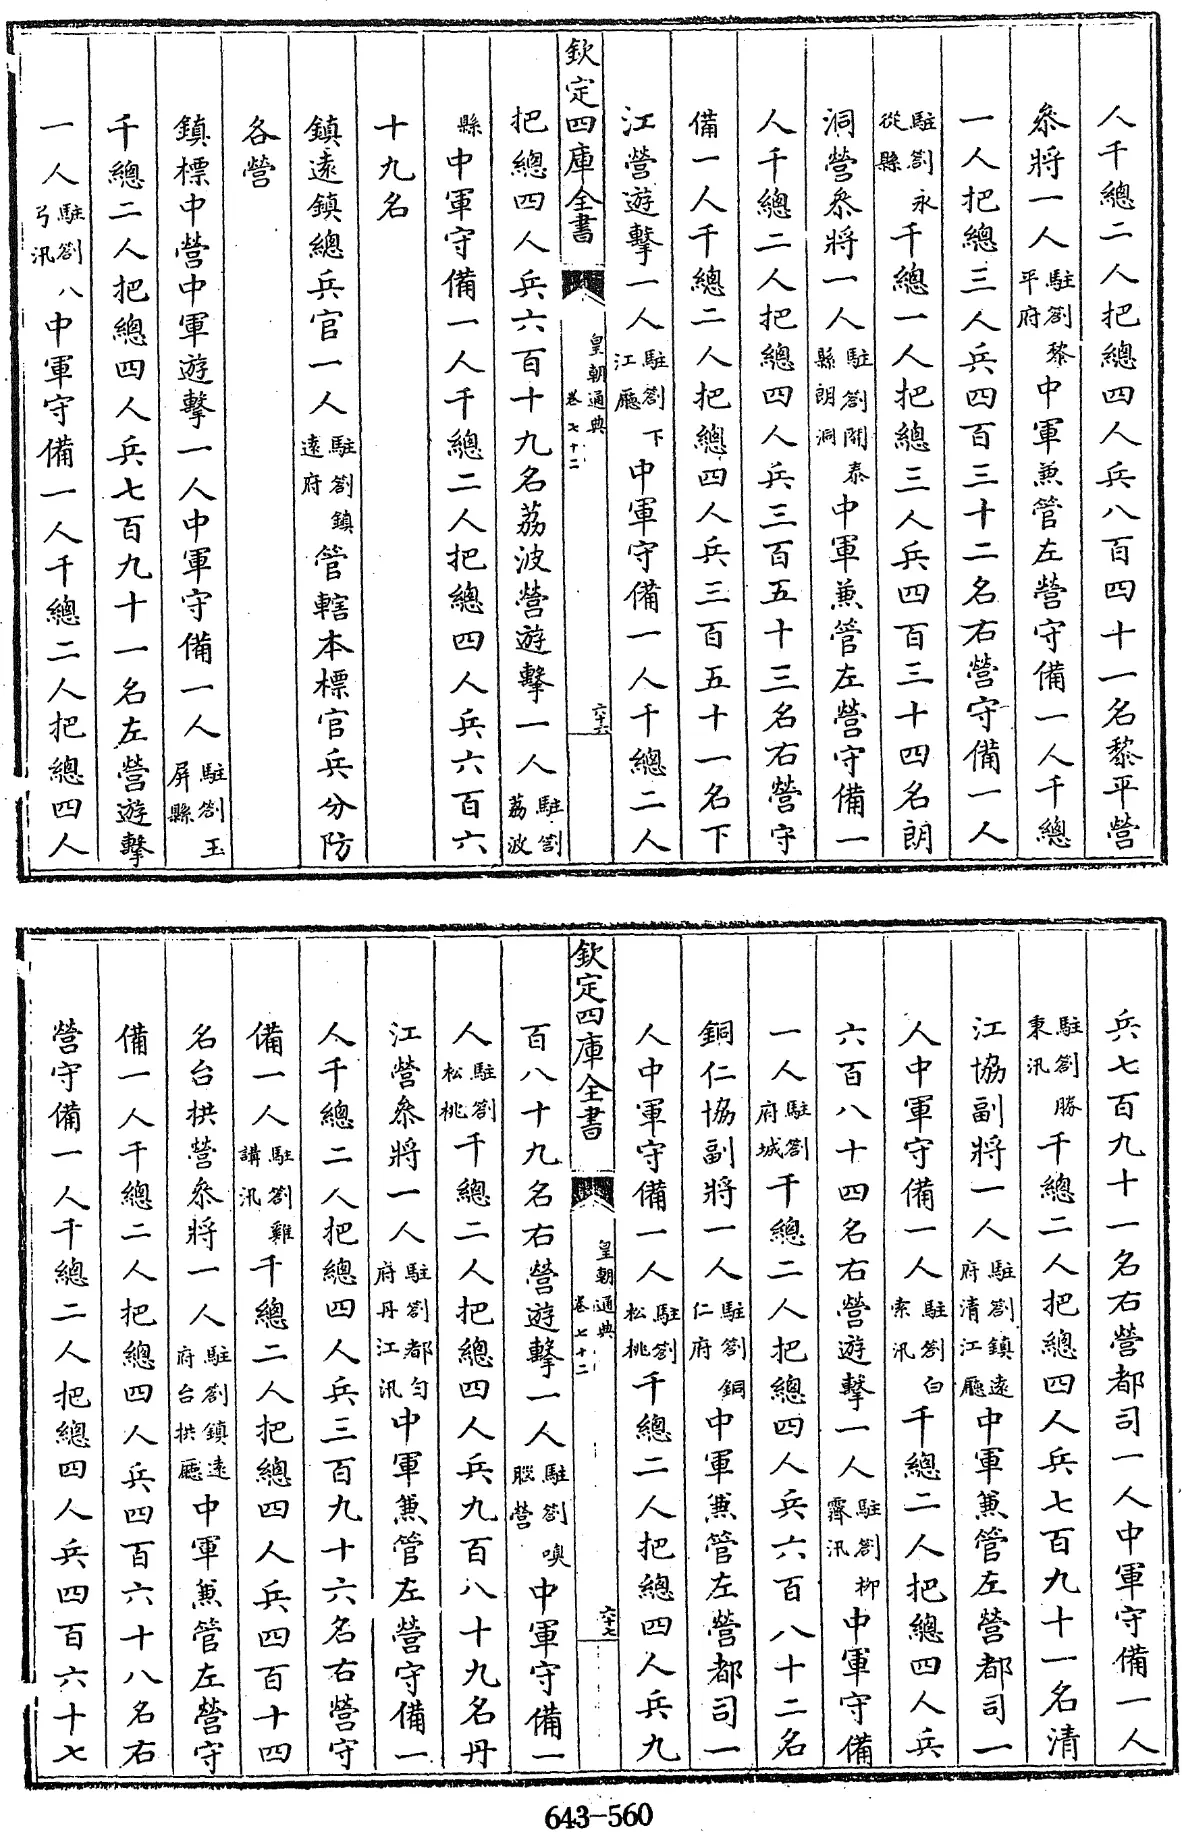 人千總二人把總四人兵八百四十一名黎平營
叅將一人駐劄黎平府中軍兼管左營守備一人千總
一人把總三人兵四百三十二名右營守備一人
駐劄永從縣千總一人把總三人兵四百三十四名朗
洞營叅將一人駐劄開泰縣朗洞中軍兼管左營守備一
人千總二人把總四人兵三百五十三名右營守
備一人千總二人把總四人兵三百五十一名下
江營遊擊一人駐劄下江廳中軍守備一人千總二人
欽定四庫全書 皇朝通典 卷七十二 六十六
把總四人兵六百十九名荔波營遊擊一人駐劄荔波
縣中軍守備一人千總二人把總四人兵六百六
十九名
鎮遠鎮總兵官一人駐劄鎮遠府管轄本標官兵分防
各營
鎮標中營中軍遊擊一人中軍守備一人駐劄玉屏縣
千總二人把總四人兵七百九十一名左營遊擊
一人駐劄八弓汛中軍守備一人千總二人把總四人
兵七百九十一名右營都司一人中軍守備一人
駐劄勝秉汛千總二人把總四人兵七百九十一名清
江協副將一人駐劄鎮遠府清江廳中軍兼管左營都司一
人中軍守備一人駐劄白索汛千總二人把總四人兵
六百八十四名右營遊擊一人駐劄柳霽汛中軍守備
一人駐劄府城千總二人把總四人兵六百八十二名
銅仁協副將一人駐劄銅仁府中軍兼管左營都司一
人中軍守備一人駐劄松桃千總二人把總四人兵九
欽定四庫全書 皇朝通典 卷七十二 六十七
百八十九名右營遊擊一人駐劄㗫腦營中軍守備一
人駐劄松桃千總二人把總四人兵九百八十九名丹
江營叅將一人駐劄都勻府丹江汛中軍兼管左營守備一
人千總二人把總四人兵三百九十六名右營守
備一人駐劄雞講汛千總二人把總四人兵四百十四
名台拱營叅將一人駐劄鎮遠府台拱廳中軍兼管左營守
備一人千總二人把總四人兵四百六十八名右
營守備一人千總二人把總四人兵四百六十七
643-560